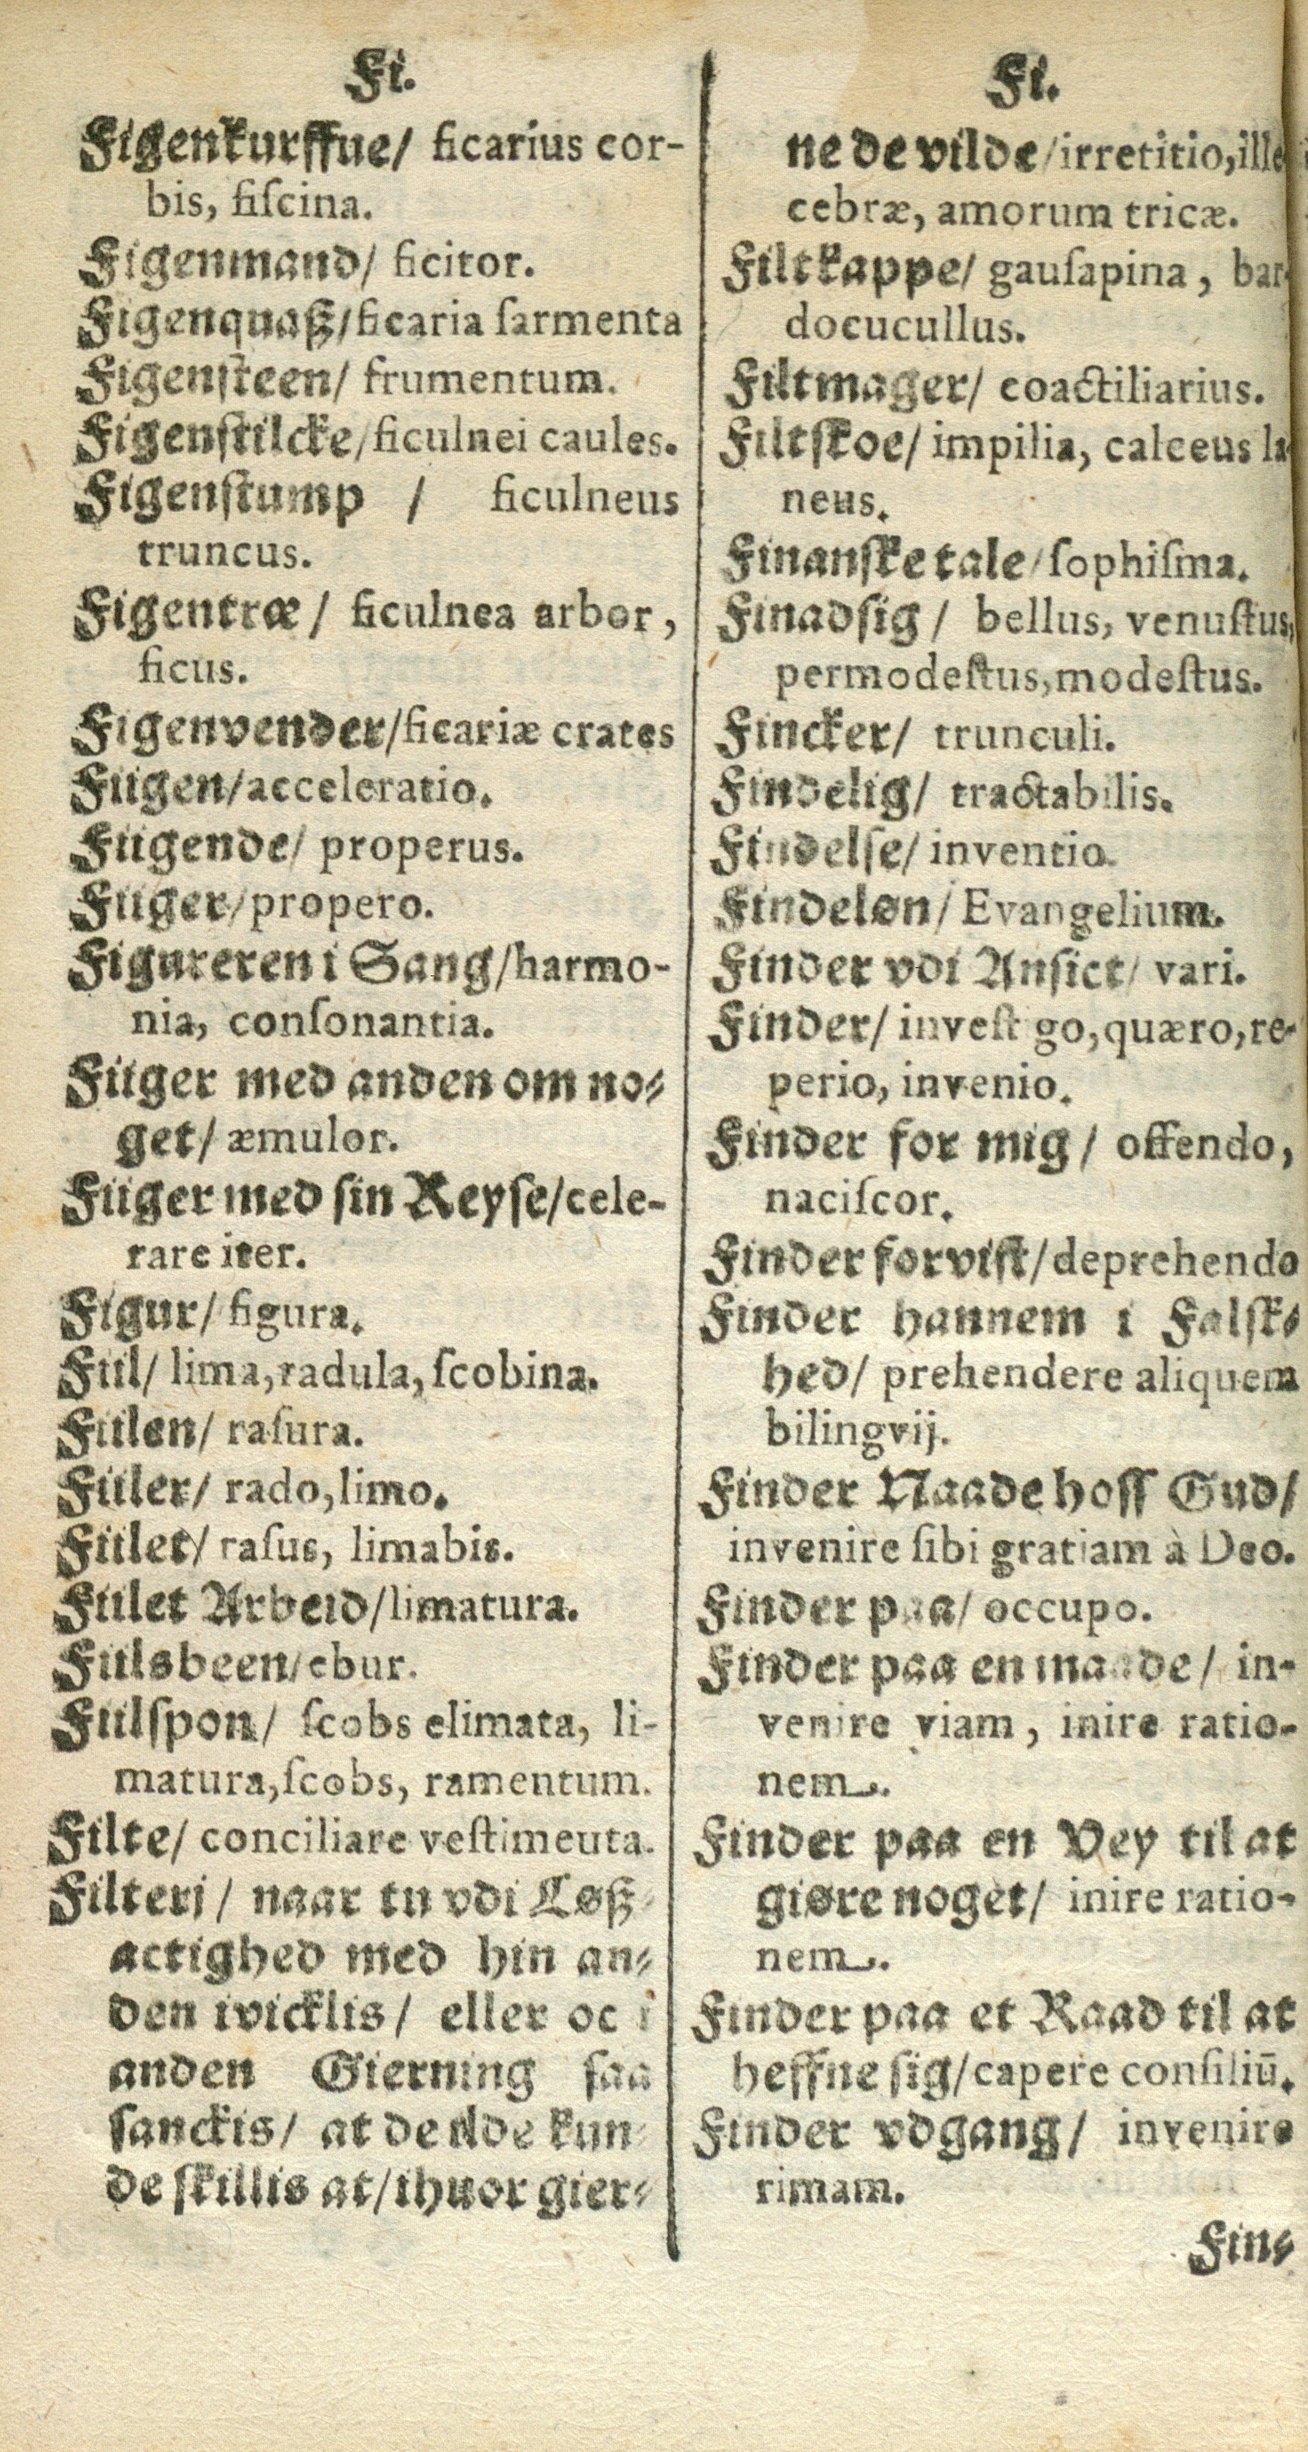 Fi.
Figenkurffue/ ficarius cor-
bis, fiſcina.
Figenmand/ ficitor.
Figenquaß/ficaria ſarmenta
Figenſteen/ frumentum.
Figenſtilcke/ficulnei caules.
Figenſtump / ficulneus
truncus.
Figentræ/ ficulnea arbor,
ficus.
Figenvender/ficariæ crates
Fiigen/acceleratio.
Fiigende/ properus.
Fiiger/propero.
Figureren i Sang/harmo-
nia, conſonantia.
Fiiger med anden om no-
get/ æmulor.
Fiiger med ſin Reyſe/cele-
rare iter.
Figur/ figura.
Fiil/ lima, radula, ſcobina.
Fiilen/ raſura.
Fiiler/ rado, limo.
Fiilet/ raſus, limabis.
Fiilet Arbeid/limatura.
Fiilsbeen/ebur.
Fiilſpon/ ſcobs elimata, li-
matura, ſcobs, ramentum.
Filte/ conciliare veſtimeuta.
Filteri/ naar tu vdi Løß-
actighed med hin an-
den ivicklis/ eller oc i
anden Gierning ſaa
ſanckis/ at de ilde kun-
de ſkillis at/ihuor gier-
Fi.
ne de vilde/irretitio, ille
cebræ, amorum tricæ.
Filtkappe/ gauſapina, bar-
docucullus.
Filtmager/ coactiliarius.
Filtſkoe/ impilia, calceus la-
neus.
Finanſke tale/ſophiſma.
Finadſig/ bellus, venuſtus,
permodeſtus, modeſtus.
Fincker/ trunculi.
Findelig/ tractabilis.
Findelſe/ inventio.
Findeløn/ Evangelium.
Finder vdi Anſict/ vari.
Finder/ inveſt go, quæro, re-
perio, invenio.
Finder for mig/ offendo,
naciſcor.
Finder forviſt/deprehendo
Finder hannem i Falſk-
hed/ prehendere aliquem
bilingvij.
Finder Naade hoſſ Gud/
invenire ſibi gratiam à Deo.
Finder paa/ occupo.
Finder paa en maade/ in-
venire viam, inire ratio-
nem.
Finder paa en Vey til at
giøre noget/ inire ratio-
nem.
Finder paa et Raad til at
heffne ſig/capere conſiliū.
Finder vdgang/ invenire
rimam.
Fin-